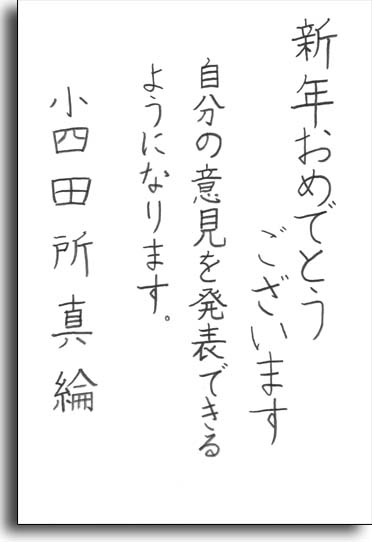 新年おめでとう
ございます
自分の意見を発表できる
ようになります。
小四田所真綸